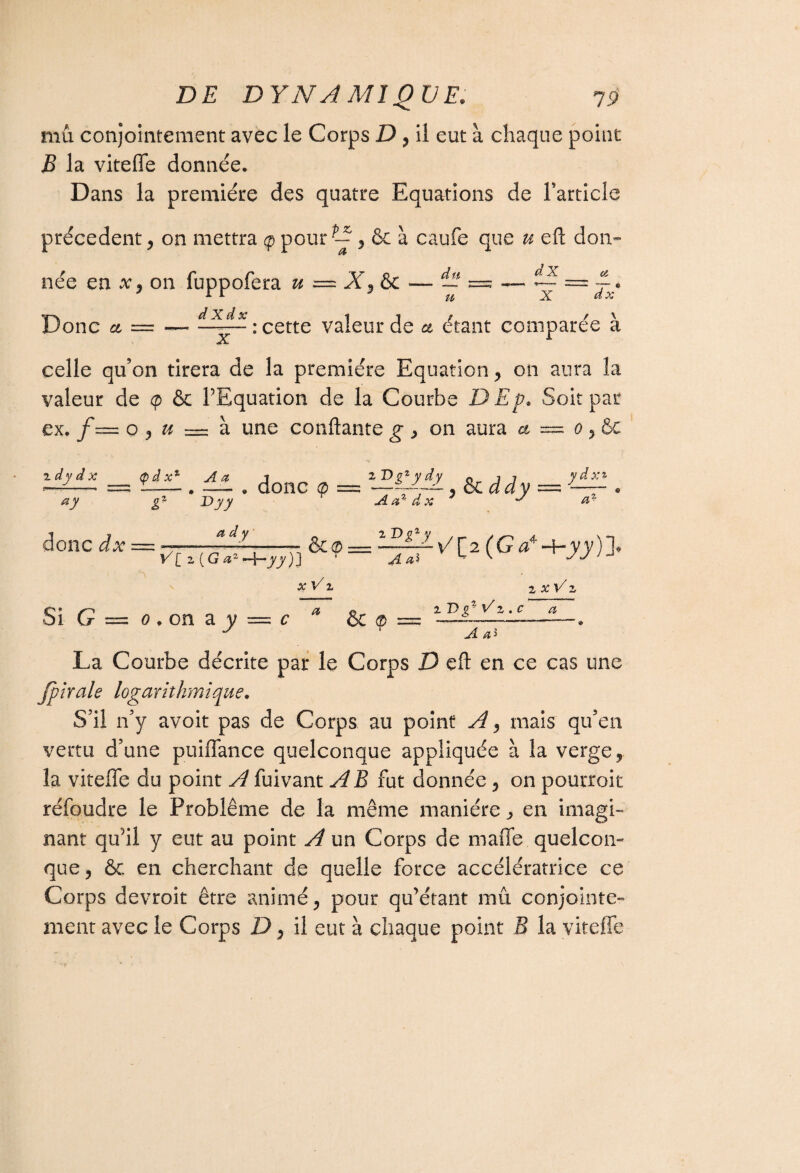 DE DYNAMIQUE. 79
mû conjointement avec le Corps D, il eut à chaque point
B la vitesse donnée.
Dans la premiére des quatre Equations de l'article
précedent, on mettra φ pour pz/a, & à cause que u est don-
née en x, on supposera u = X, & — du/u = — dX/X = α/dx.
Donc α = — dXdx/X : cette valeur de α étant comparée à
celle qu'on tirera de la premiére Equation, on aura la
valeur de φ & l'Equation de la Courbe DEp. Soit par
ex. f = 0, u = à une constante g, on aura α = 0, &
2dydx/ay = φdx²/g² . Aa/Dyy . donc φ = 2Dg²ydy/Aa²dx, & ddy = ydx²/a².
donc dx = ady/√[2(Ga²+yy)] & φ = 2Dg²y/Aa³ √[2(Ga⁴+yy)].
Si G = 0. on a y = c^(x√2/a) & φ = 2Dg²√2.c^(2x√2/a)/Aa³.
La Courbe décrite par le Corps D est en ce cas une
spirale logarithmique.
S'il n'y avoit pas de Corps au point A, mais qu'en
vertu d'une puissance quelconque appliquée à la verge,
la vitesse du point A suivant AB fut donnée, on pourroit
résoudre le Problême de la même maniére, en imagi-
nant qu'il y eut au point A un Corps de masse quelcon-
que, & en cherchant de quelle force accélératrice ce
Corps devroit être animé, pour qu'étant mû conjointe-
ment avec le Corps D, il eut à chaque point B la vitesse